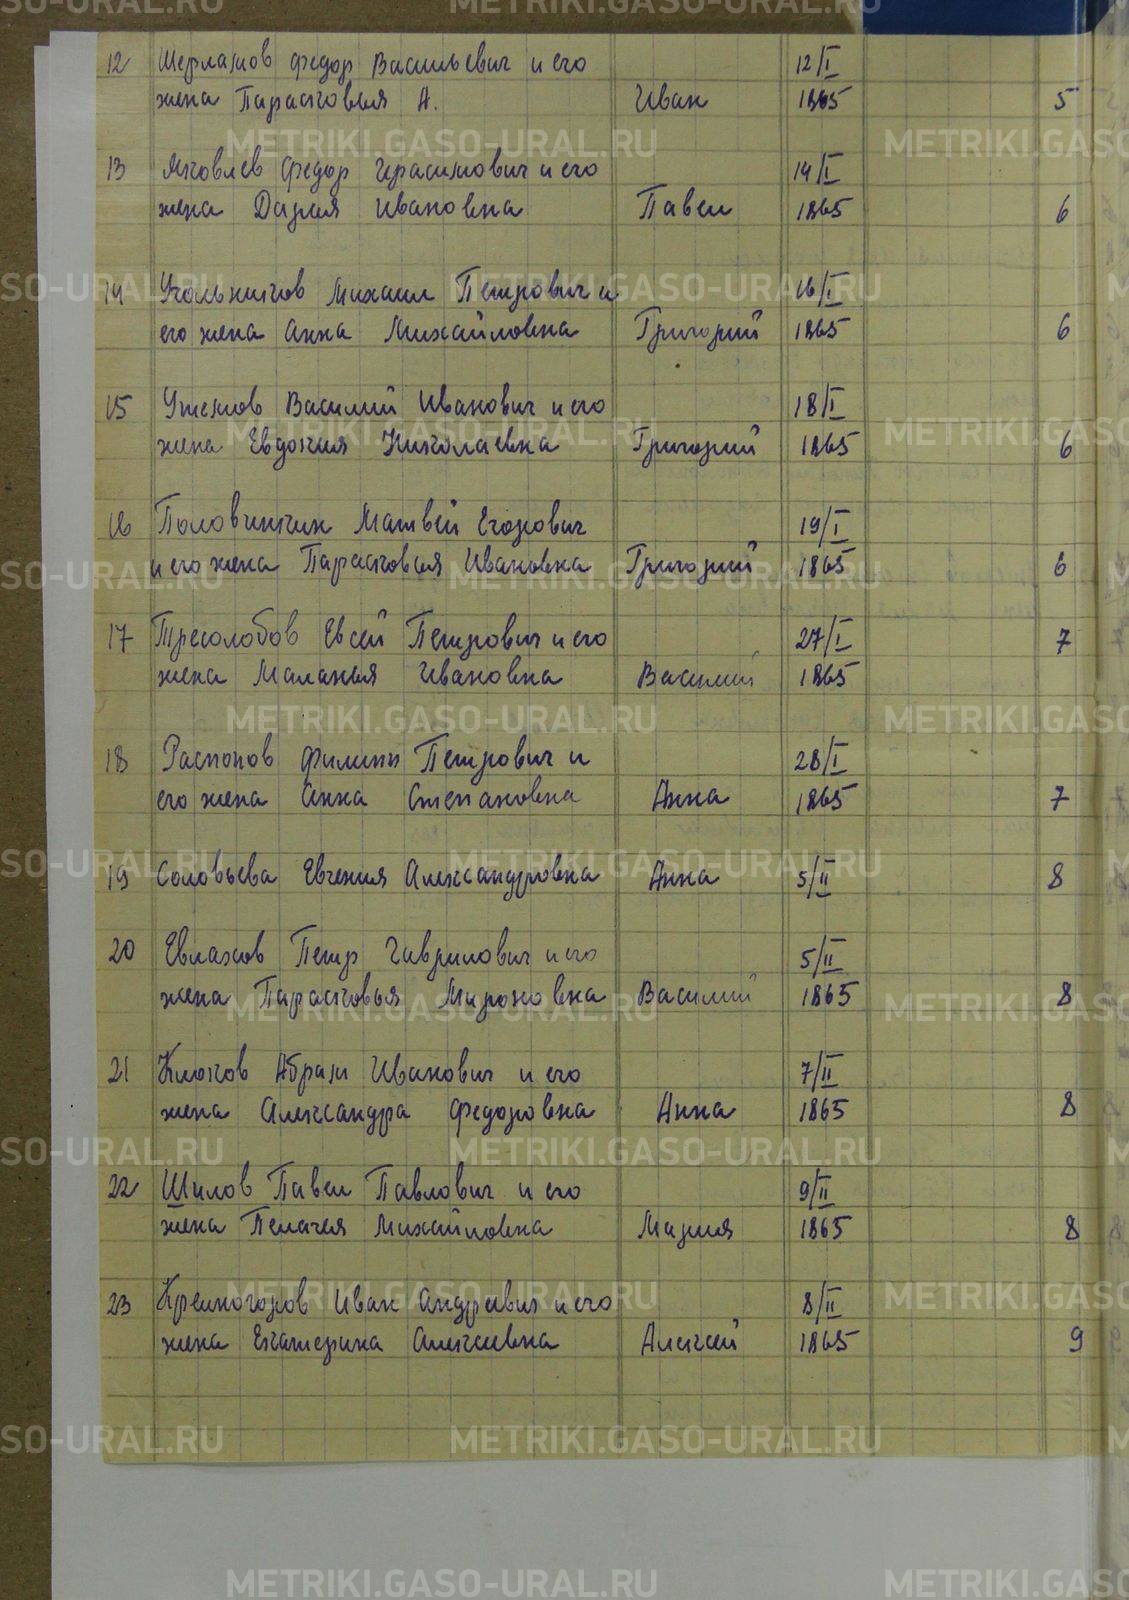 12 Шерлаимов Федор Васильевич и его 12/I
жена Парасковья А. Иван 1865 5
13 Яковлев Федор Герасимович и его 14/I
жена Дарья Ивановна Павел 1865 6
14 Угольников Михаил Петрович и 16/I
его жена Анна Михайловна Григорий 1865 6
15 Ужемов Василий Иванович и его 18/I
жена Евдокия Николаевна Григорий 1865 6
16 Половинкин Матвей Егорович 19/I
и его жена Парасковья Ивановна Григорий 1865 6
17 Тресолобов Евсей Петрович и его 27/I 7
жена Маланья Ивановна Василий 1865
18 Распопов Филипп Петрович и 28/I
его жена Анна Степановна Анна 1865 7
19 Соловьева Евгения Александровна Анна 5/II 8
20 Евлахов Петр Гаврилович и его 5/II
жена Парасковья Мироновна Василий 1865 8
21 Клюков Абрам Иванович и его 7/II
жена Александра Федоровна Анна 1865 8
22 Шилов Павел Павлович и его 9/II
жена Пелагея Михайловна Мария 1865 8
23 Кремногоров Иван Андреевич и его 8/II
жена Екатерина Алексеевна Алексей 1865 9
METRIKI.GASO-URAL.RU